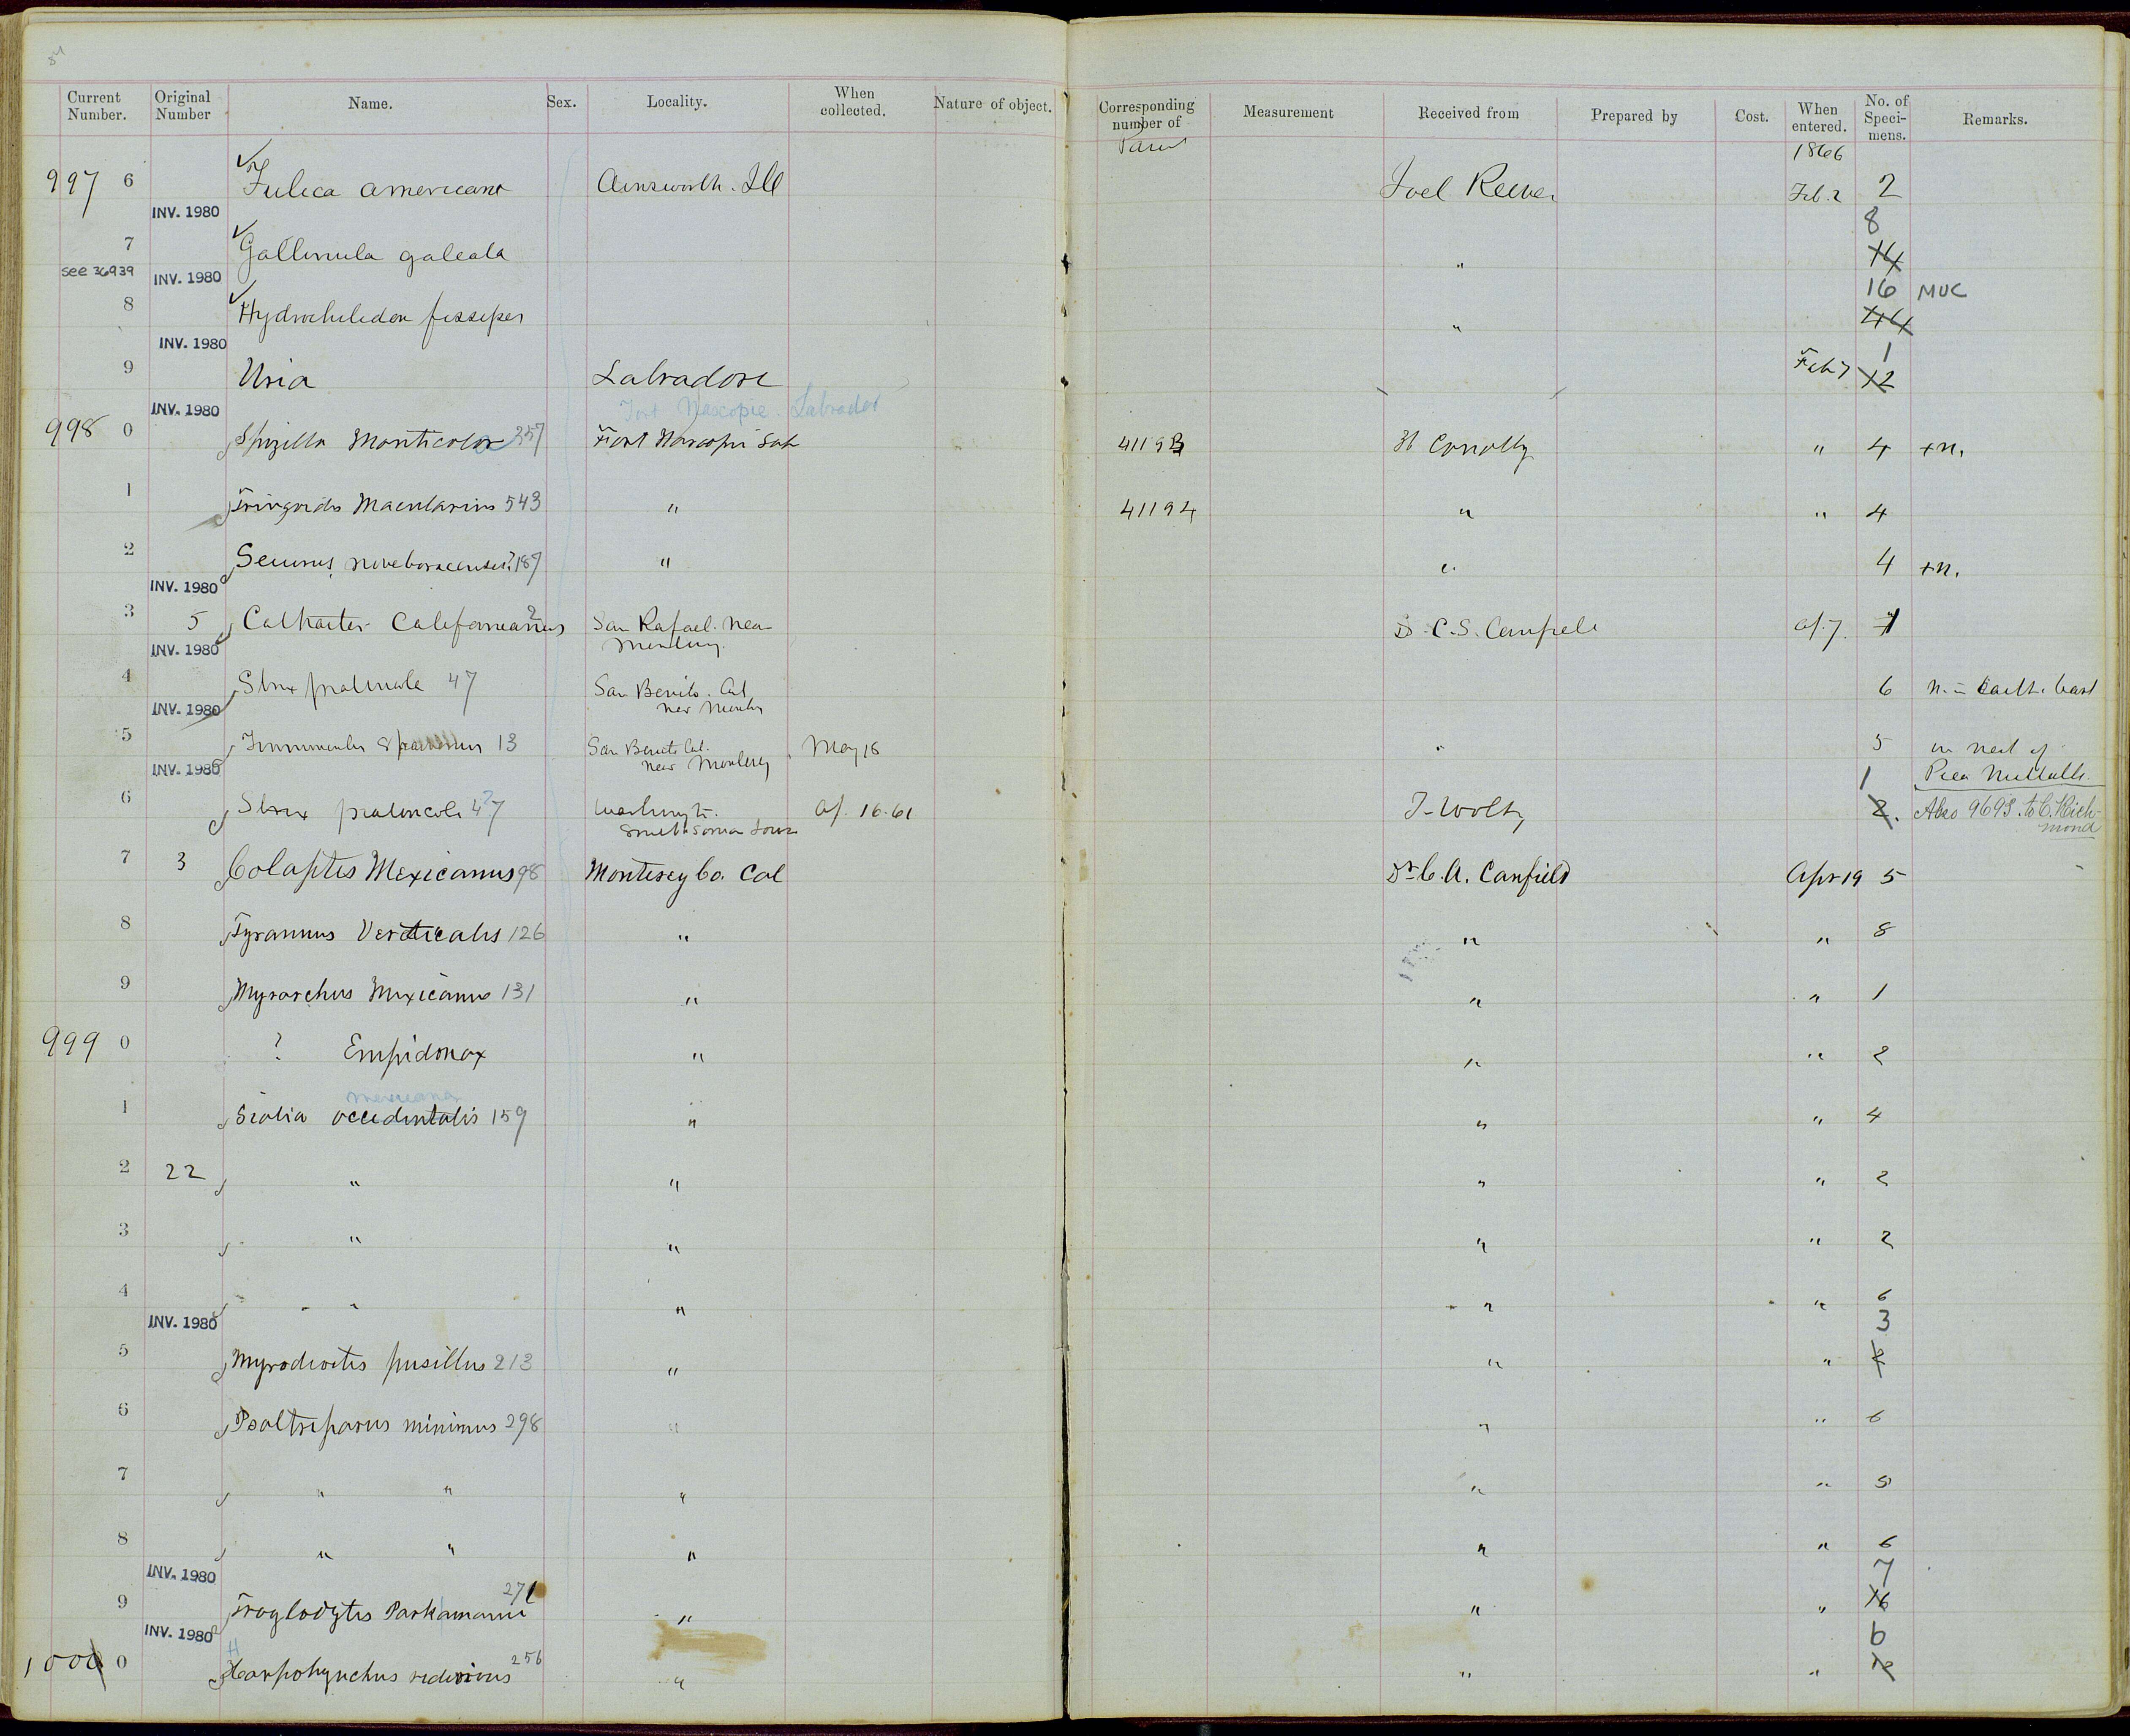 84
Current Number. Original Number Name. Sex. Locality. When collected. Nature of object. Corresponding number of Measurement Received from Prepared by Cost. When entered. No. of Specimens. Remarks.
Parent 1866
997 6 Fulica americana Ainsworth. Ill Joel Reeve Feb. 2 2
INV. 1980
8
7 Gallinula galeata " 14
see 36939 INV. 1980
16 MUC
8 Hydrochelidon fissipes " 44
INV. 1980
1
9 Uria Labradore Feb 7 12
INV. 1980 Fort Nascopie. Labrador
998 0 Spizella Monticola 357 Fort Nascopie Lab 41193 H Connolly " 4 +n.
1 Tringoides Macularius 543 " 41194 " " 4
2 Seiurus noveboracensis? 187 " " 4 +n.
INV. 1980
3 5 Cathartes Californianus 2 San Rafael. near Monterey. D. C. S. Canfield Ap. 7. 1
INV. 1980
4 Strix pratincola 47 San Benito. Cal near Monterey 6 n. in earth bank
INV. 1980
5 Tinnunculus sparverius 13 San Benito Cal. near Monterey May 18 " 5 in nest of Pica Nuttalli.
INV. 1980
1
6 Strix pratincola 47 Washington. Smithsonian Tower Ap. 16. 61 J. Wolty 2. Also 9693. to C. Richmond
7 3 Colaptes Mexicanus 98 Monterey Co. Cal Dr. C. A. Canfield Apr 19 5
8 Tyrannus Verticalis 126 " " " 8
9 Myrarchus Mexicanus 131 " " " 1
999 0 ? Empidonax " " " 2
mexicana
1 Sialia occidentalis 159 " " " 4
2 22 " " " " 2
3 " " " " 2
4 " " " " 6
INV. 1980 3
5 Myiodioctes pusillus 213 " " "
6 Psaltriparus minimus 298 " " " 6
7 " " " " " 5
8 " " " " " 6
INV. 1980 7
271
9 Troglodytes Parkmanni " " " 16
INV. 1980 6
H
1000 0 Harporhynchus redivivus 256 " " "